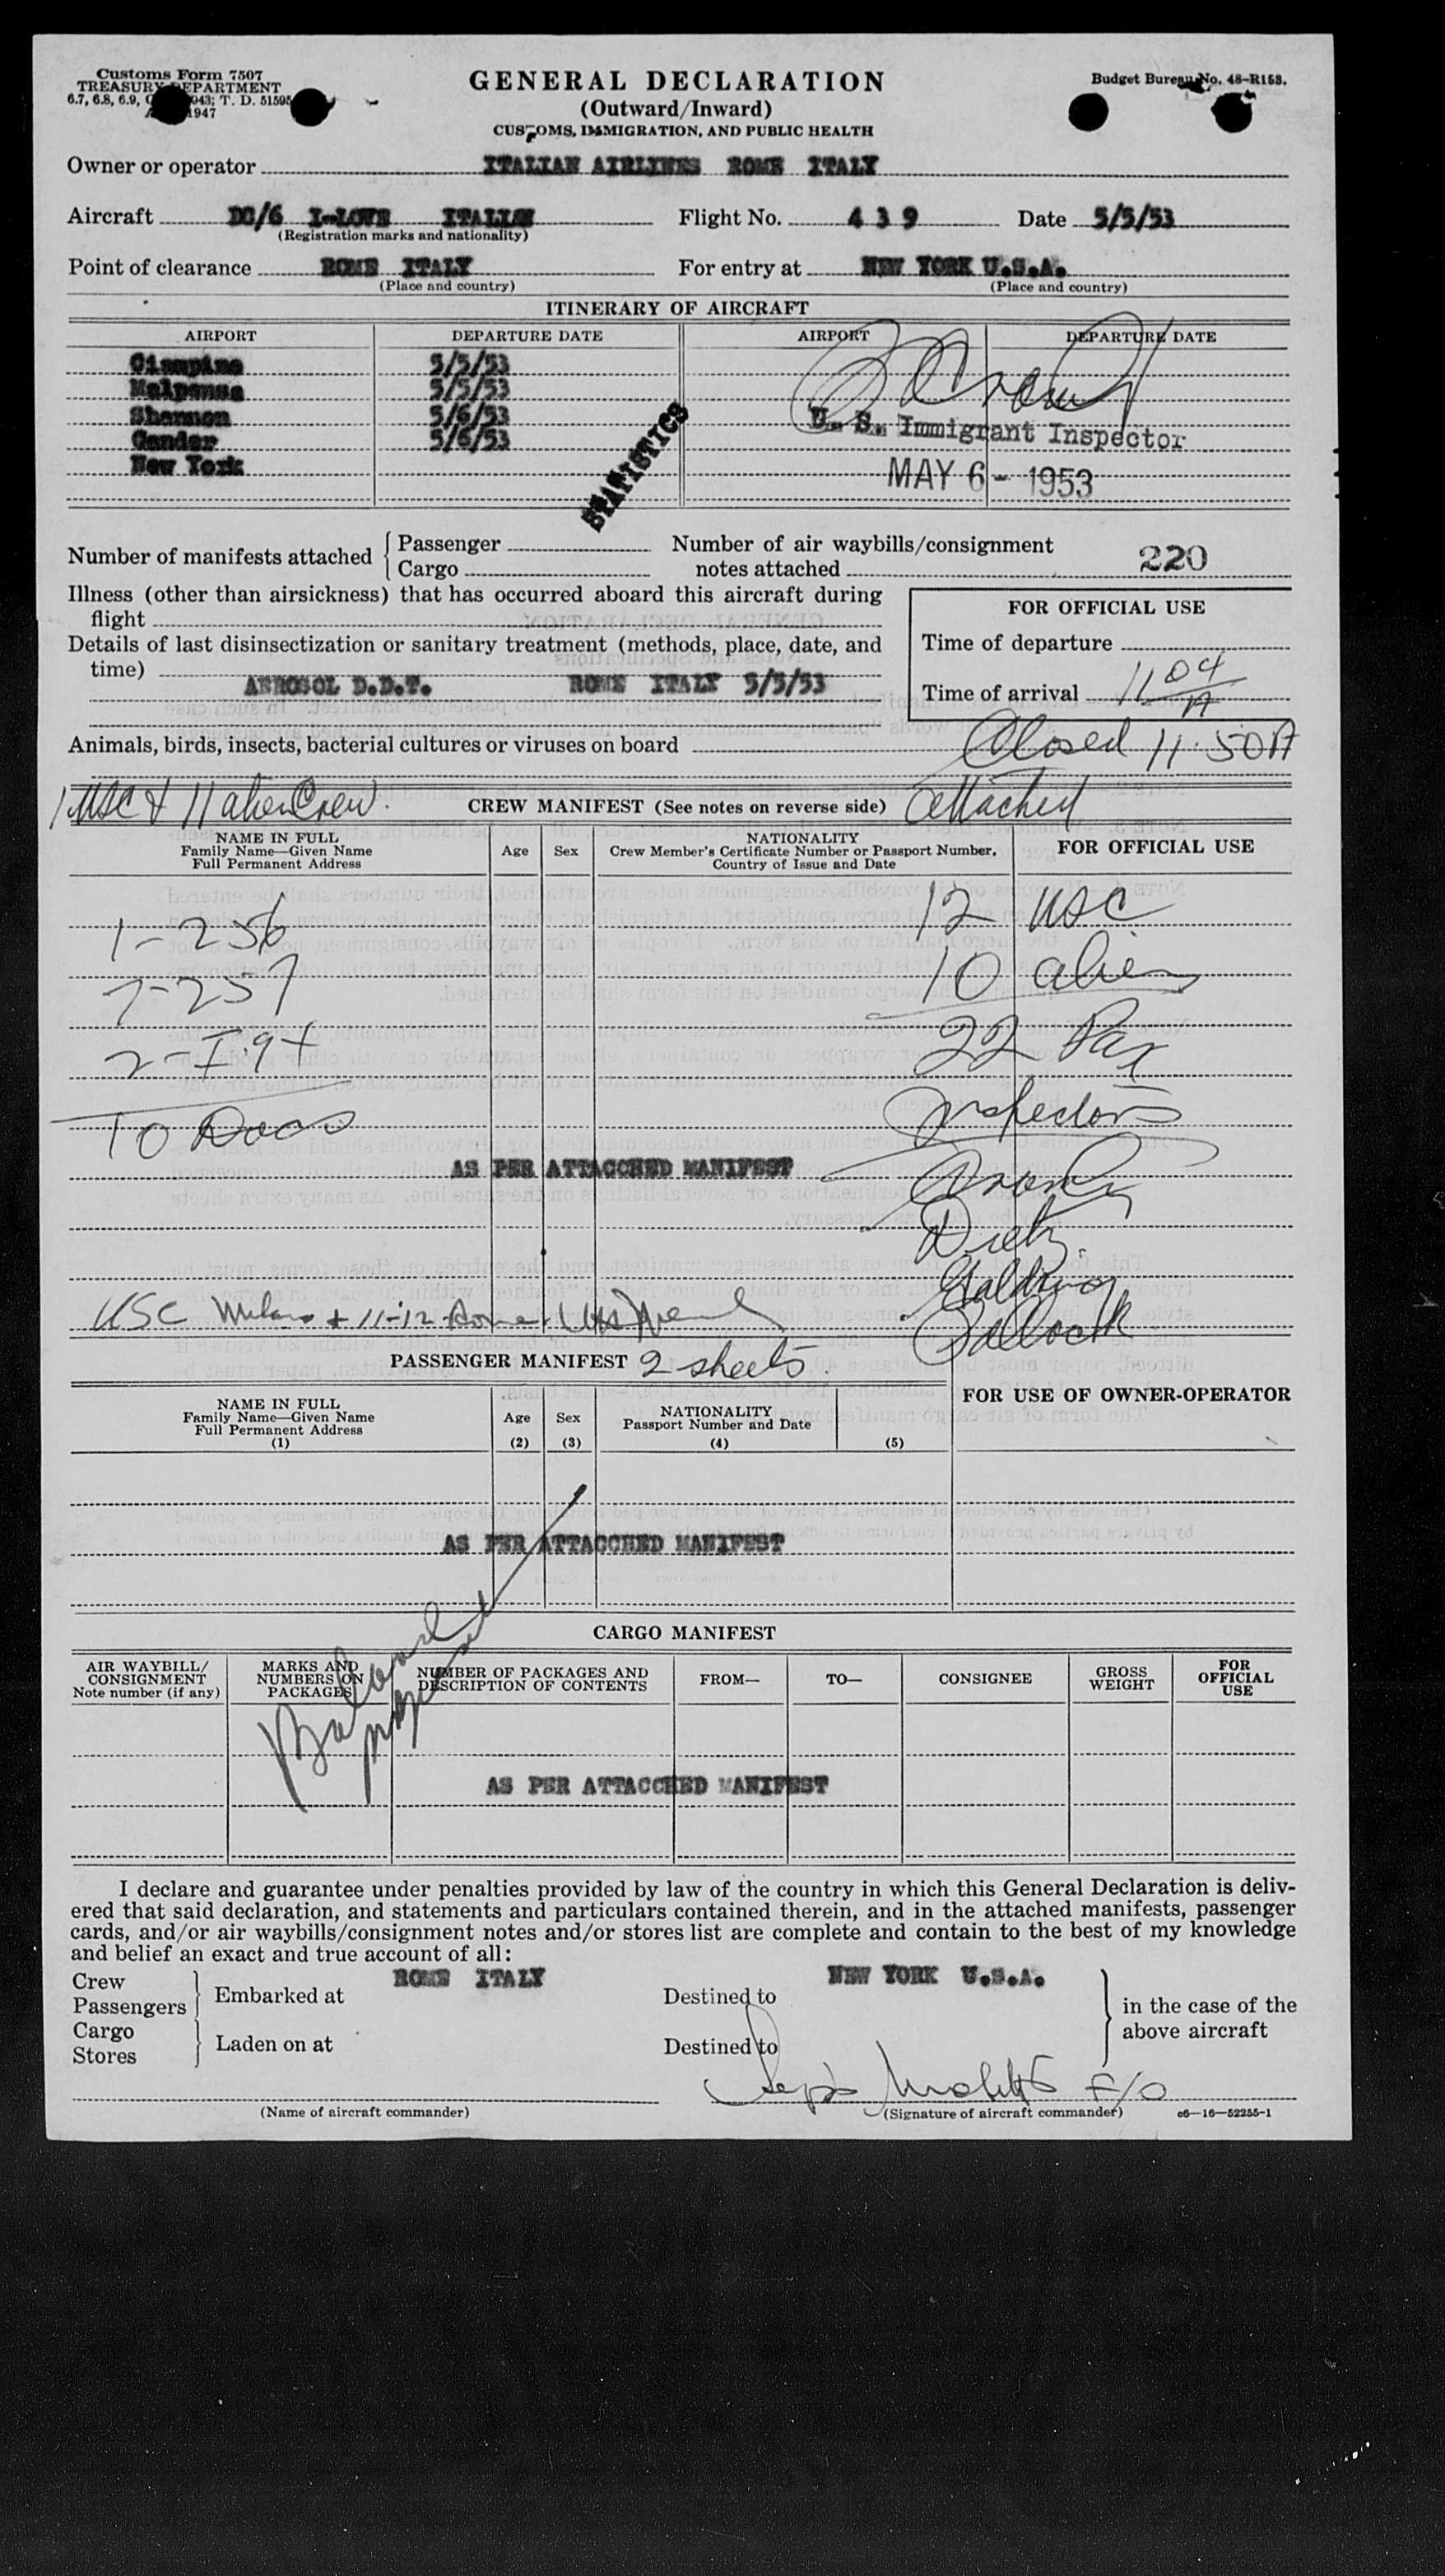 Customs Form 7507
TREASURY DEPARTMENT
6.7, 6.8, 6.9, 043; T. D. 51595
1947
GENERAL DECLARATION
(Outward/Inward)
CUSTOMS, IMMIGRATION, AND PUBLIC HEALTH
Budget Bureau No. 48-R153.
Owner or operator ITALIAN AIRLINES ROME ITALY
Aircraft DC/6 I-LOVE ITALIAN Flight No. 439 Date 5/5/53
(Registration marks and nationality)
Point of clearance ROME ITALY For entry at NEW YORK U.S.A.
(Place and country) (Place and country)
ITINERARY OF AIRCRAFT
AIRPORT DEPARTURE DATE AIRPORT DEPARTURE DATE
Ciampino 5/5/53
Malpensa 5/5/53
Shannon 5/6/53
Gander 5/6/53
New York
STATISTICS
U. S. Immigrant Inspector
MAY 6 - 1953
Number of manifests attached { Passenger
Cargo
Number of air waybills/consignment
notes attached 220
Illness (other than airsickness) that has occurred aboard this aircraft during
flight
Details of last disinsectization or sanitary treatment (methods, place, date, and
time)
AEROSOL D.D.T. ROME ITALY 5/5/53
FOR OFFICIAL USE
Time of departure
Time of arrival 11 04 A
Animals, birds, insects, bacterial cultures or viruses on board
Closed 11.50A
1 USC & 11 alien Crew. CREW MANIFEST (See notes on reverse side) attached
NAME IN FULL
Family Name—Given Name
Full Permanent Address
Age Sex
NATIONALITY
Crew Member's Certificate Number or Passport Number,
Country of Issue and Date
FOR OFFICIAL USE
1-256 12 USC
7-257 10 alien
2-I.94 22 Pax
10 Docs Inspectors
AS PER ATTACCHED MANIFEST
Dietz
Pollock
USC Milano + 11-12 Rome
PASSENGER MANIFEST 2 sheets.
NAME IN FULL
Family Name—Given Name
Full Permanent Address
(1)
Age
(2)
Sex
(3)
NATIONALITY
Passport Number and Date
(4) (5)
FOR USE OF OWNER-OPERATOR
AS PER ATTACCHED MANIFEST
CARGO MANIFEST
AIR WAYBILL/
CONSIGNMENT
Note number (if any)
MARKS AND
NUMBERS ON
PACKAGES
NUMBER OF PACKAGES AND
DESCRIPTION OF CONTENTS
FROM— TO— CONSIGNEE
GROSS
WEIGHT
FOR
OFFICIAL
USE
AS PER ATTACCHED MANIFEST
I declare and guarantee under penalties provided by law of the country in which this General Declaration is deliv-
ered that said declaration, and statements and particulars contained therein, and in the attached manifests, passenger
cards, and/or air waybills/consignment notes and/or stores list are complete and contain to the best of my knowledge
and belief an exact and true account of all:
Crew
Passengers } Embarked at ROME ITALY Destined to NEW YORK U.S.A.
Cargo
Stores } Laden on at Destined to
} in the case of the
above aircraft
F/O
(Name of aircraft commander) (Signature of aircraft commander) c6—16—52255-1